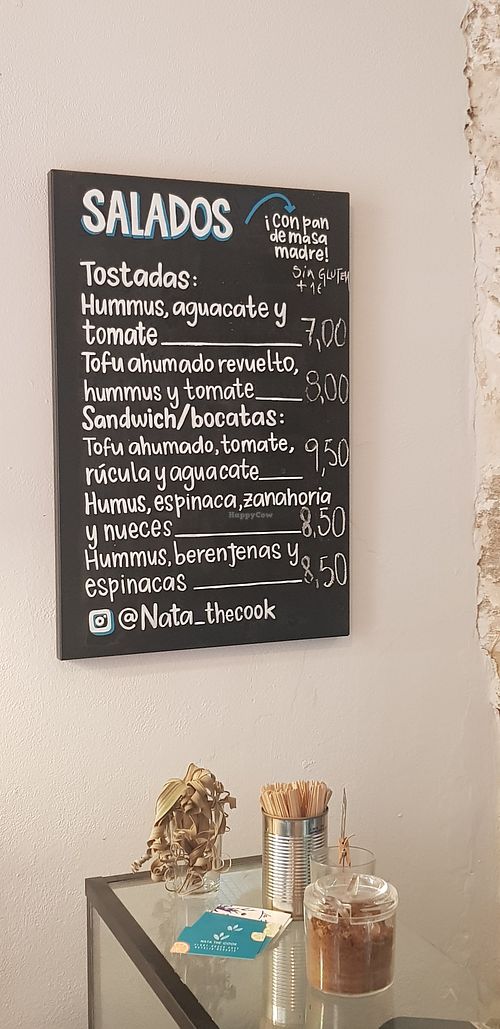 SALADOS
¡Con pan
de masa
madre!
Sin GLUTEN
+ 1€
Tostadas:
Hummus, aguacate y
tomate 7,00
Tofu ahumado revuelto,
hummus y tomate 8,00
Sandwich/bocatas:
Tofu ahumado, tomate, 9,50
rúcula y aguacate
Humus, espinaca, zanahoria
y nueces 8,50
Hummus, berenjenas y 8,50
espinacas
@Nata_thecook
HappyCow
NATA THE COOK